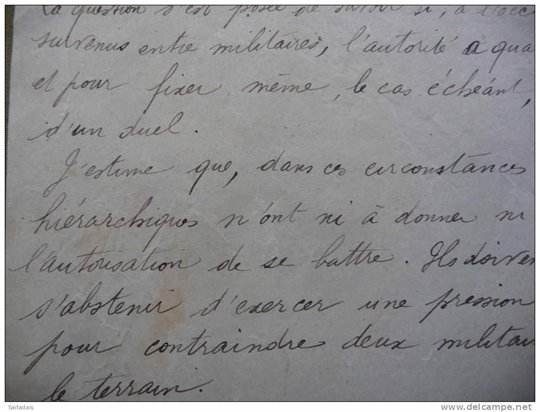 La question s'est posée de savoir si, à l'occ
survenus entre militaires, l'autorité a qua
et pour fixer même, le cas échéant,
d'un duel.
J'estime que, dans ces circonstances
hiérarchiques n'ont ni à donner ni
l'autorisation de se battre. Ils doiven
s'abstenir d'exercer une pression
pour contraindre deux militai
le terrain.
Serladais
www.delcampe.net